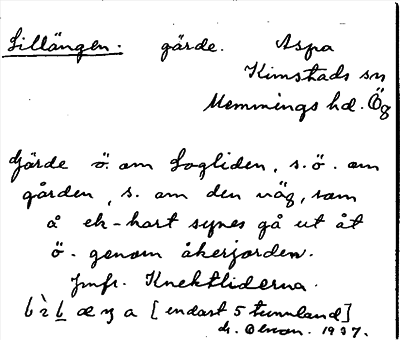 Lillängen. gärde. Aspa
Kimstads sn
Memmings hd. Ög
Gärde ö. om Logliden, s.ö. om
gården, s. om den väg, som
å ek-kart synes gå ut åt
ö. genom åkerjorden.
Jmfr. Knektliderna.
[endast 5 tunnland]
1937.